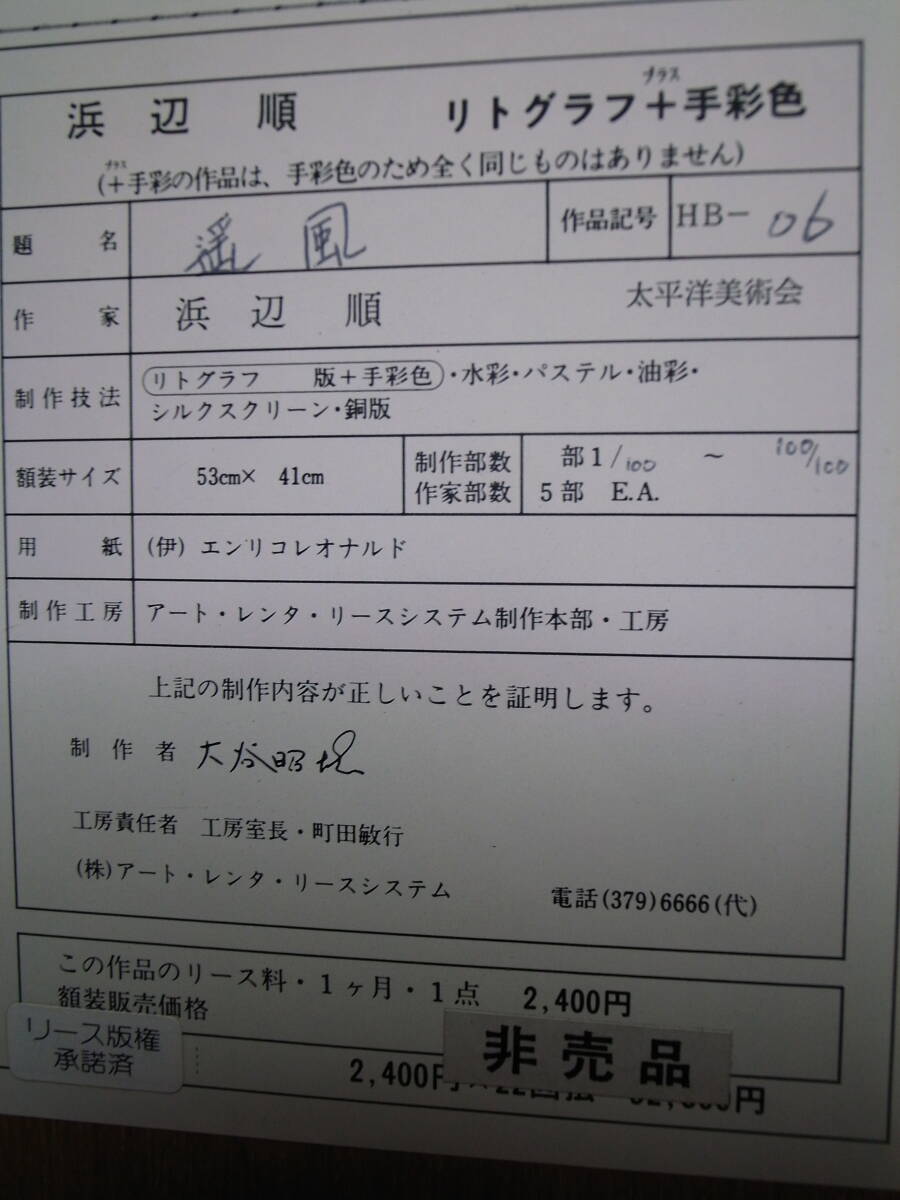 浜辺順 リトグラフ+手彩色
プラス
プラス
(+手彩の作品は、手彩色のため全く同じものはありません)
題名 遥風 作品記号 HB-06
作家 浜辺順 太平洋美術会
制作技法 リトグラフ 版+手彩色・水彩・パステル・油彩・
シルクスクリーン・銅版
額装サイズ 53cm× 41cm 制作部数 部1/100 ~ 100/100
作家部数 5部 E.A.
用紙 (伊) エンリコレオナルド
制作工房 アート・レンタ・リースシステム制作本部・工房
上記の制作内容が正しいことを証明します。
制作者 大谷昭
工房責任者 工房室長・町田敏行
(株)アート・レンタ・リースシステム 電話(379)6666(代)
この作品のリース料・1ヶ月・1点 2,400円
額装販売価格
リース版権
承諾済
非売品
2,400円 円